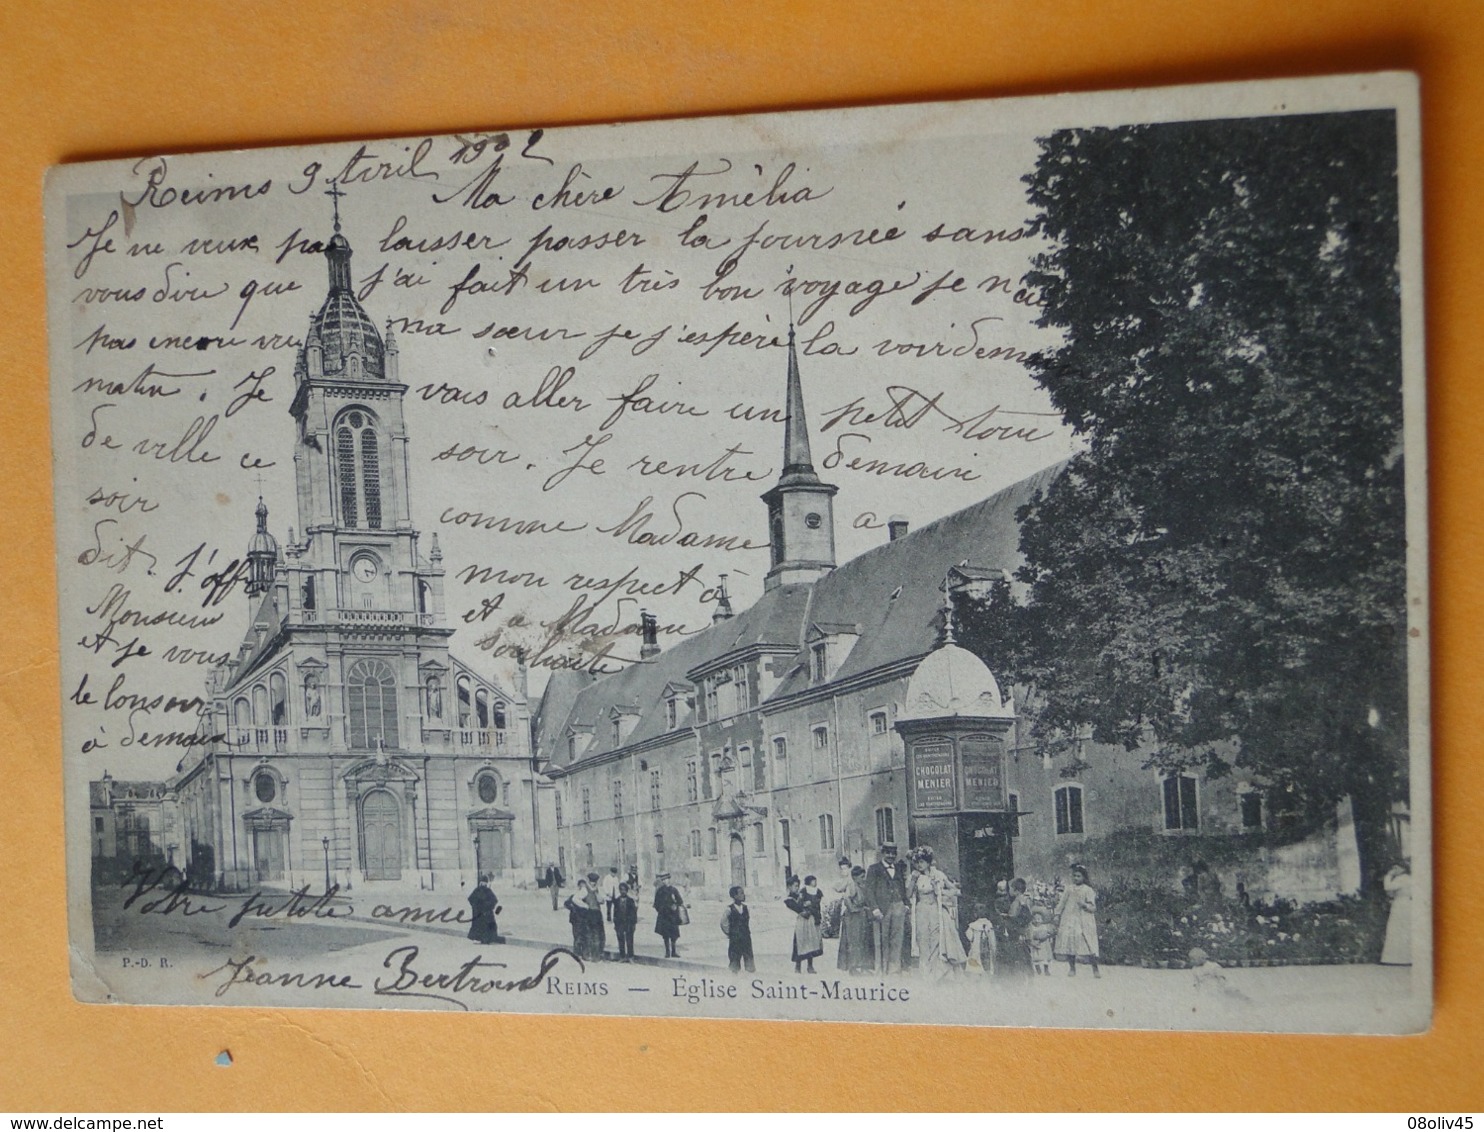 Reims 9 Avril 1902
Ma chère Amèlia
Je ne veux pas laisser passer la journeé sans
vous dire que j'ai fait un très bon voyage je n'ai
pas encore vu ma sœur je j'espère la voir demain
matin. Je vais aller faire un petit tour
de ville ce soir. Je rentre demain
soir comme Madame a
dit. J'offre mon respect à
Monsieur et a Madame
et je vous souhaite
le bonsoir
à demain
Votre petite amie
Jeanne Bertrand
CHOCOLAT
MENIER
CHOCOLAT
MENIER
P.-D. R.
REIMS — Église Saint-Maurice
https://www.delcampe.net
08oliv45